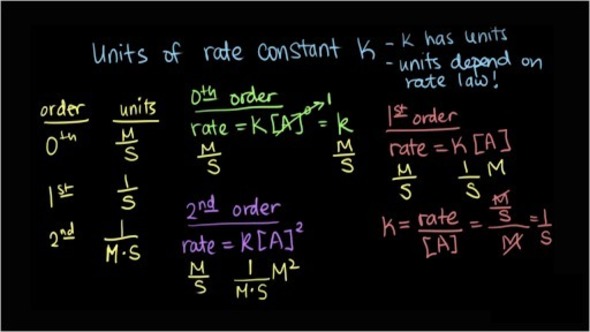 Units of rate constant K
- K has units
- units depend on
rate law!
order units
0th M/S
1st 1/S
2nd 1/M·S
0th order
rate = K[A]⁰ → 1 = k
M/S M/S
2nd order
rate = k[A]²
M/S 1/M·S M²
1st order
rate = K[A]
M/S 1/S M
K = rate/[A] = M/S/M = 1/S